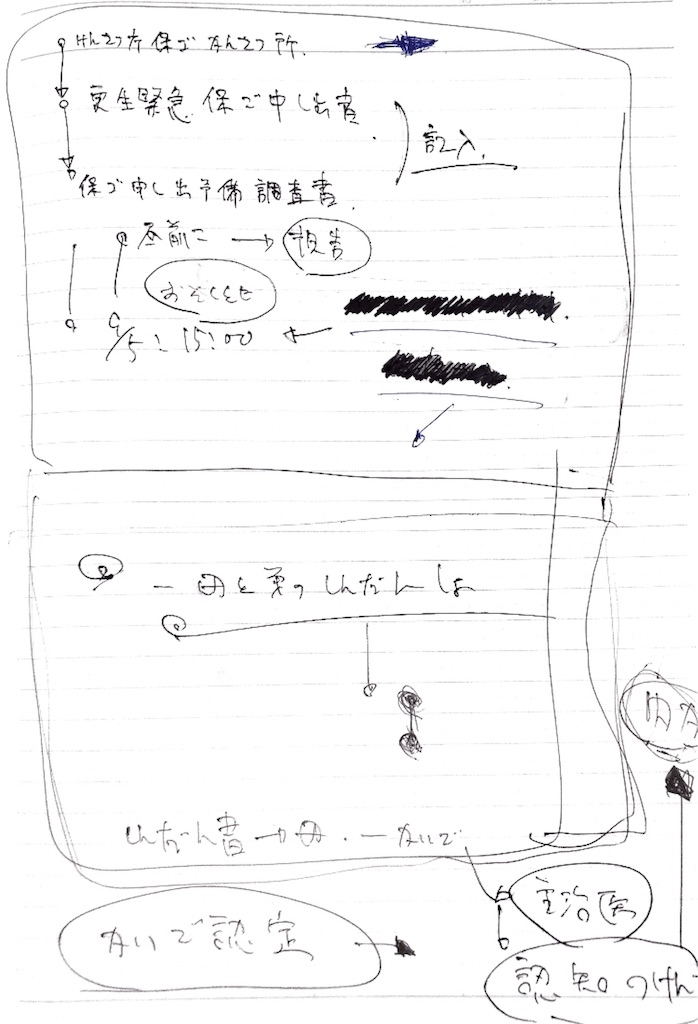 けんさつ庁 保ご かんさつ所.
更生緊急 保ご申し出書.
記入.
保ご申し出予備調査書.
昼前に → 報告
おそくとも
9/5: 15:00 ←
一 母と弟のしんだんしょ
しんだん書→母.ー かいご
主治医
かいご認定
認知のけん